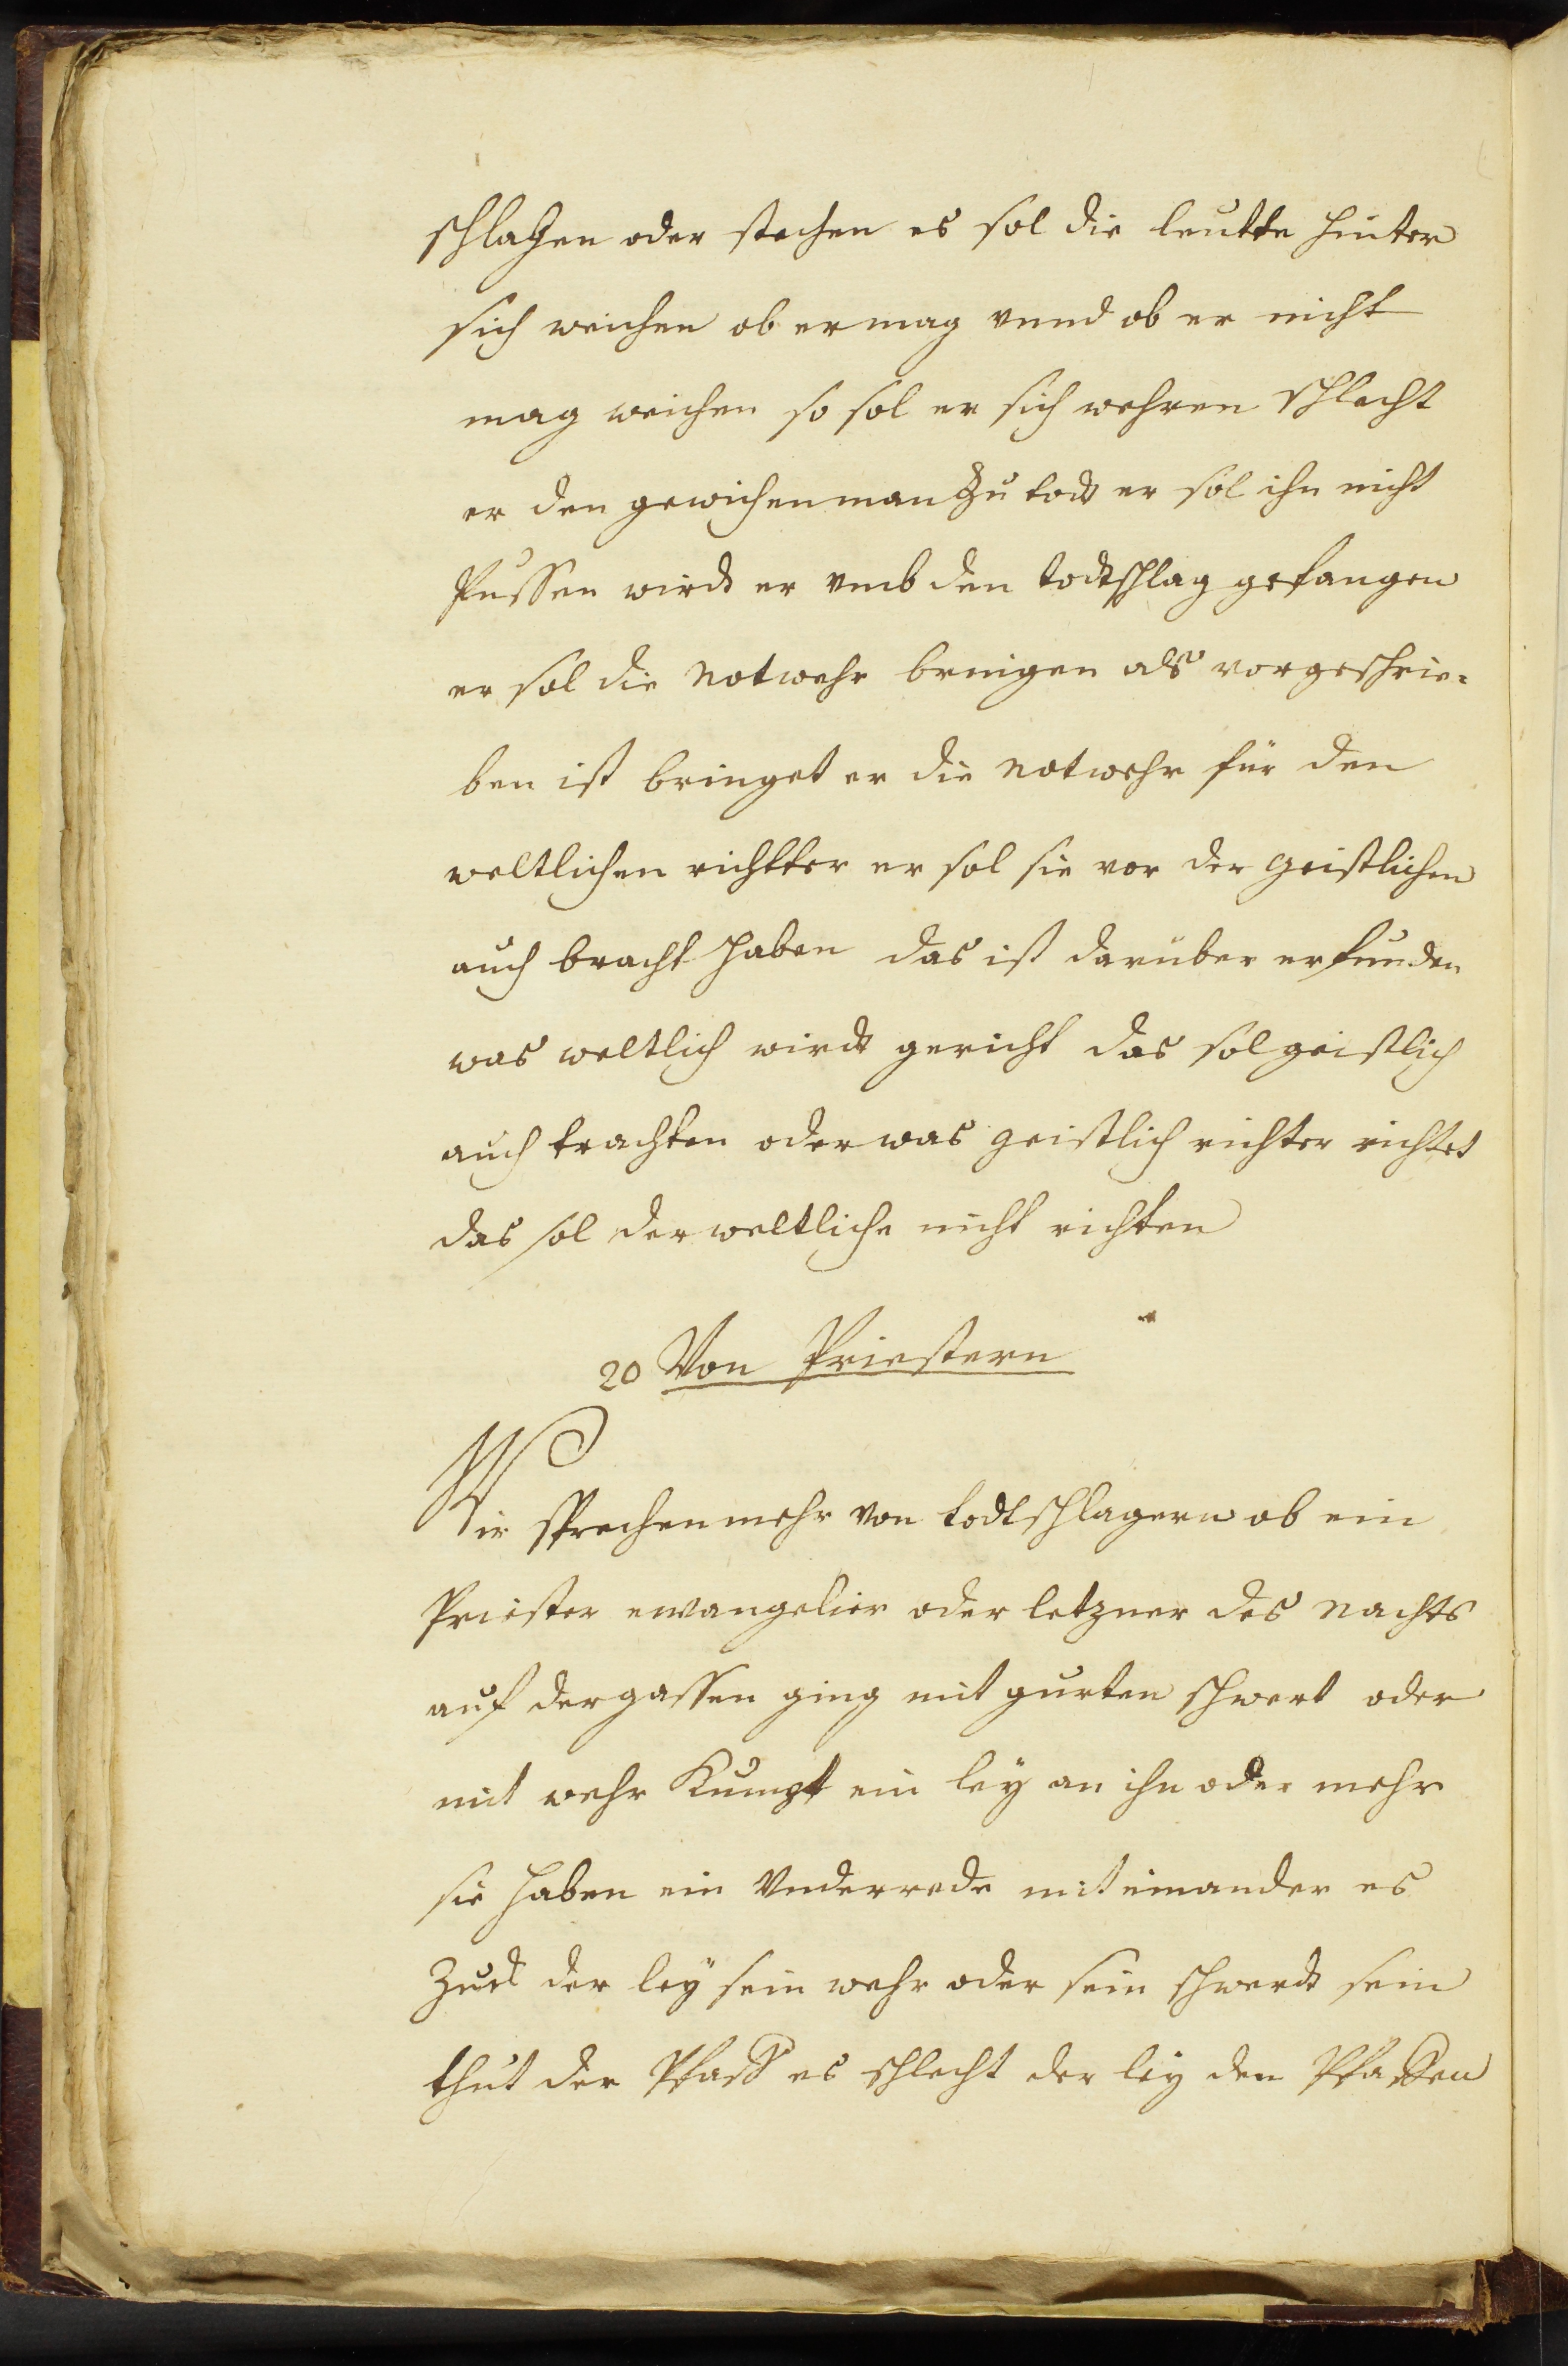 schlahen oder stechen es sol die leutte hinter
sich weichen ob er mag vnnd ob er nicht
mag weichen so sol er sich wehren schlecht
er den gewichen man zu todt er sol ihn nicht
Pussen wirdt er vmb den todtschlag gefangen
er sol die notwehr bringen als vorgeschrie-
ben ist bringet er die notwehr für den
weltlichen richtter er sol sie vor der geistlichen
auch bracht haben das ist darüber erfunden
was weltlich wirdt gericht das sol geistlich
auch trachten oder was geistlich richter richtet
das sol der weltliche nicht richten
20 Von Priestern
Wir sprechen mehr von todtschlagern ob ein
Priester ewangelier oder letzner des nachts
auf der gassen ging mit gurten schwert oder
mit wehr Kumpt ein ley an ihn oder mehr
sie haben ein Vnderrede mit einander es
Zuckt der ley sein wehr oder sein schwerdt sein
thut der Pfaff es schlecht der ley den Pfaffen